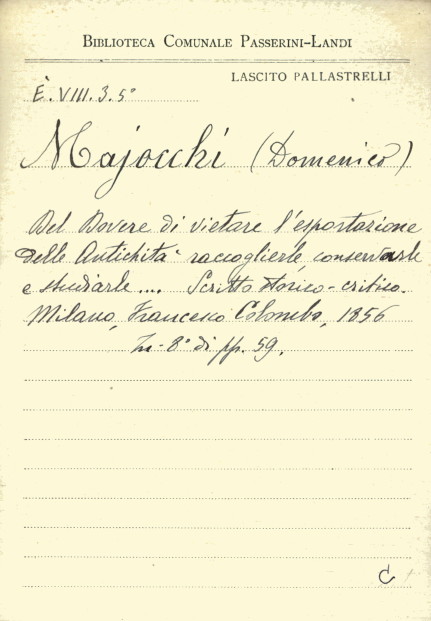 BIBLIOTECA COMUNALE PASSERINI-LANDI
LASCITO PALLASTRELLI
È. VIII. 3. 5°
Majocchi (Domenico)
Del Dovere di vietare l'esportazione
delle Antichità raccoglierle, conservarle
e studiarle .... Scritto storico-critico.
Milano, Francesco Colombo, 1856
In-8° di pp. 59.
C